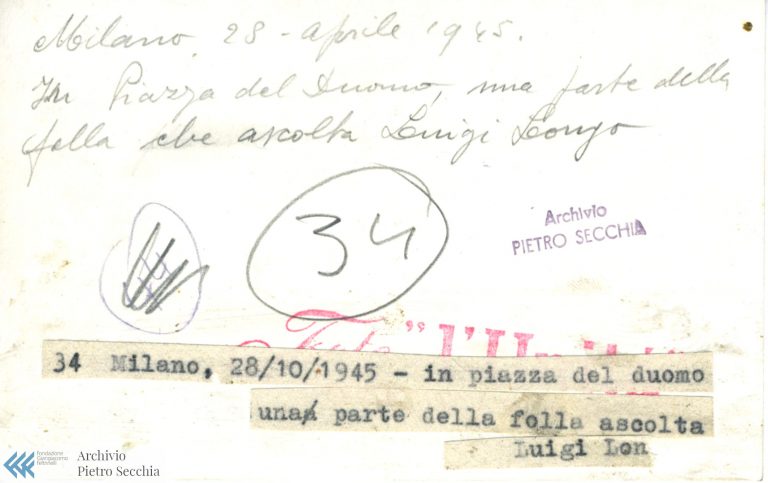 Milano, 28 - Aprile 1945.
In Piazza del Duomo, una parte della
folla che ascolta Luigi Longo
34
Archivio
PIETRO SECCHIA
Foto "l'Unità"
34 Milano, 28/10/1945 - in piazza del duomo
una parte della folla ascolta
Luigi Lon
fondazione
Giangiacomo
Feltrinelli
Archivio
Pietro Secchia